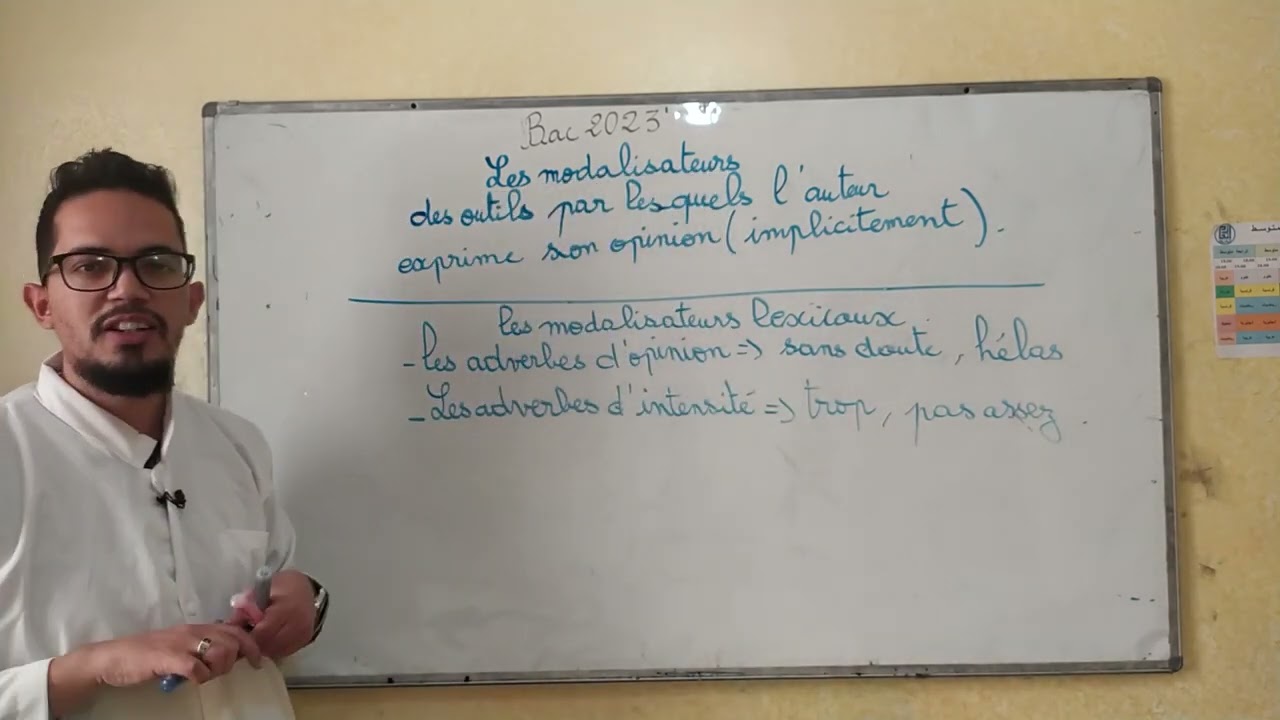 Bac 2023
Les modalisateurs
des outils par lesquels l'auteur
exprime son opinion (implicitement).
les modalisateurs lexicaux
- les adverbes d'opinion => sans doute, hélas
- Les adverbes d'intensité => trop, pas assez.